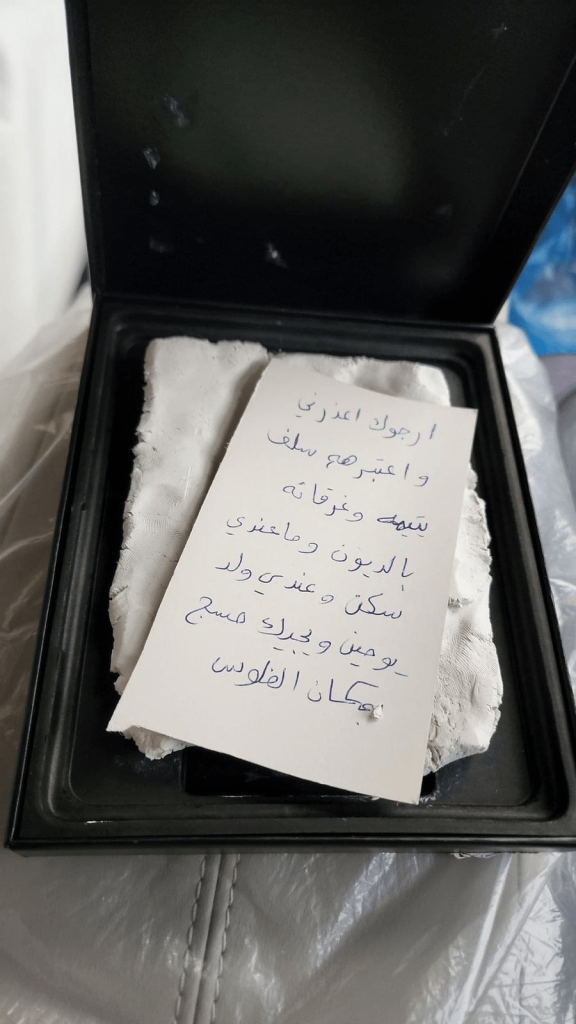 ارجوك اعذرني
و اعتبرهه سلف
يتيمه وغرقانه
بالديون وماعندي
سكن وعندي ولد
يومين ويجيك مسج
بمكان الفلوس